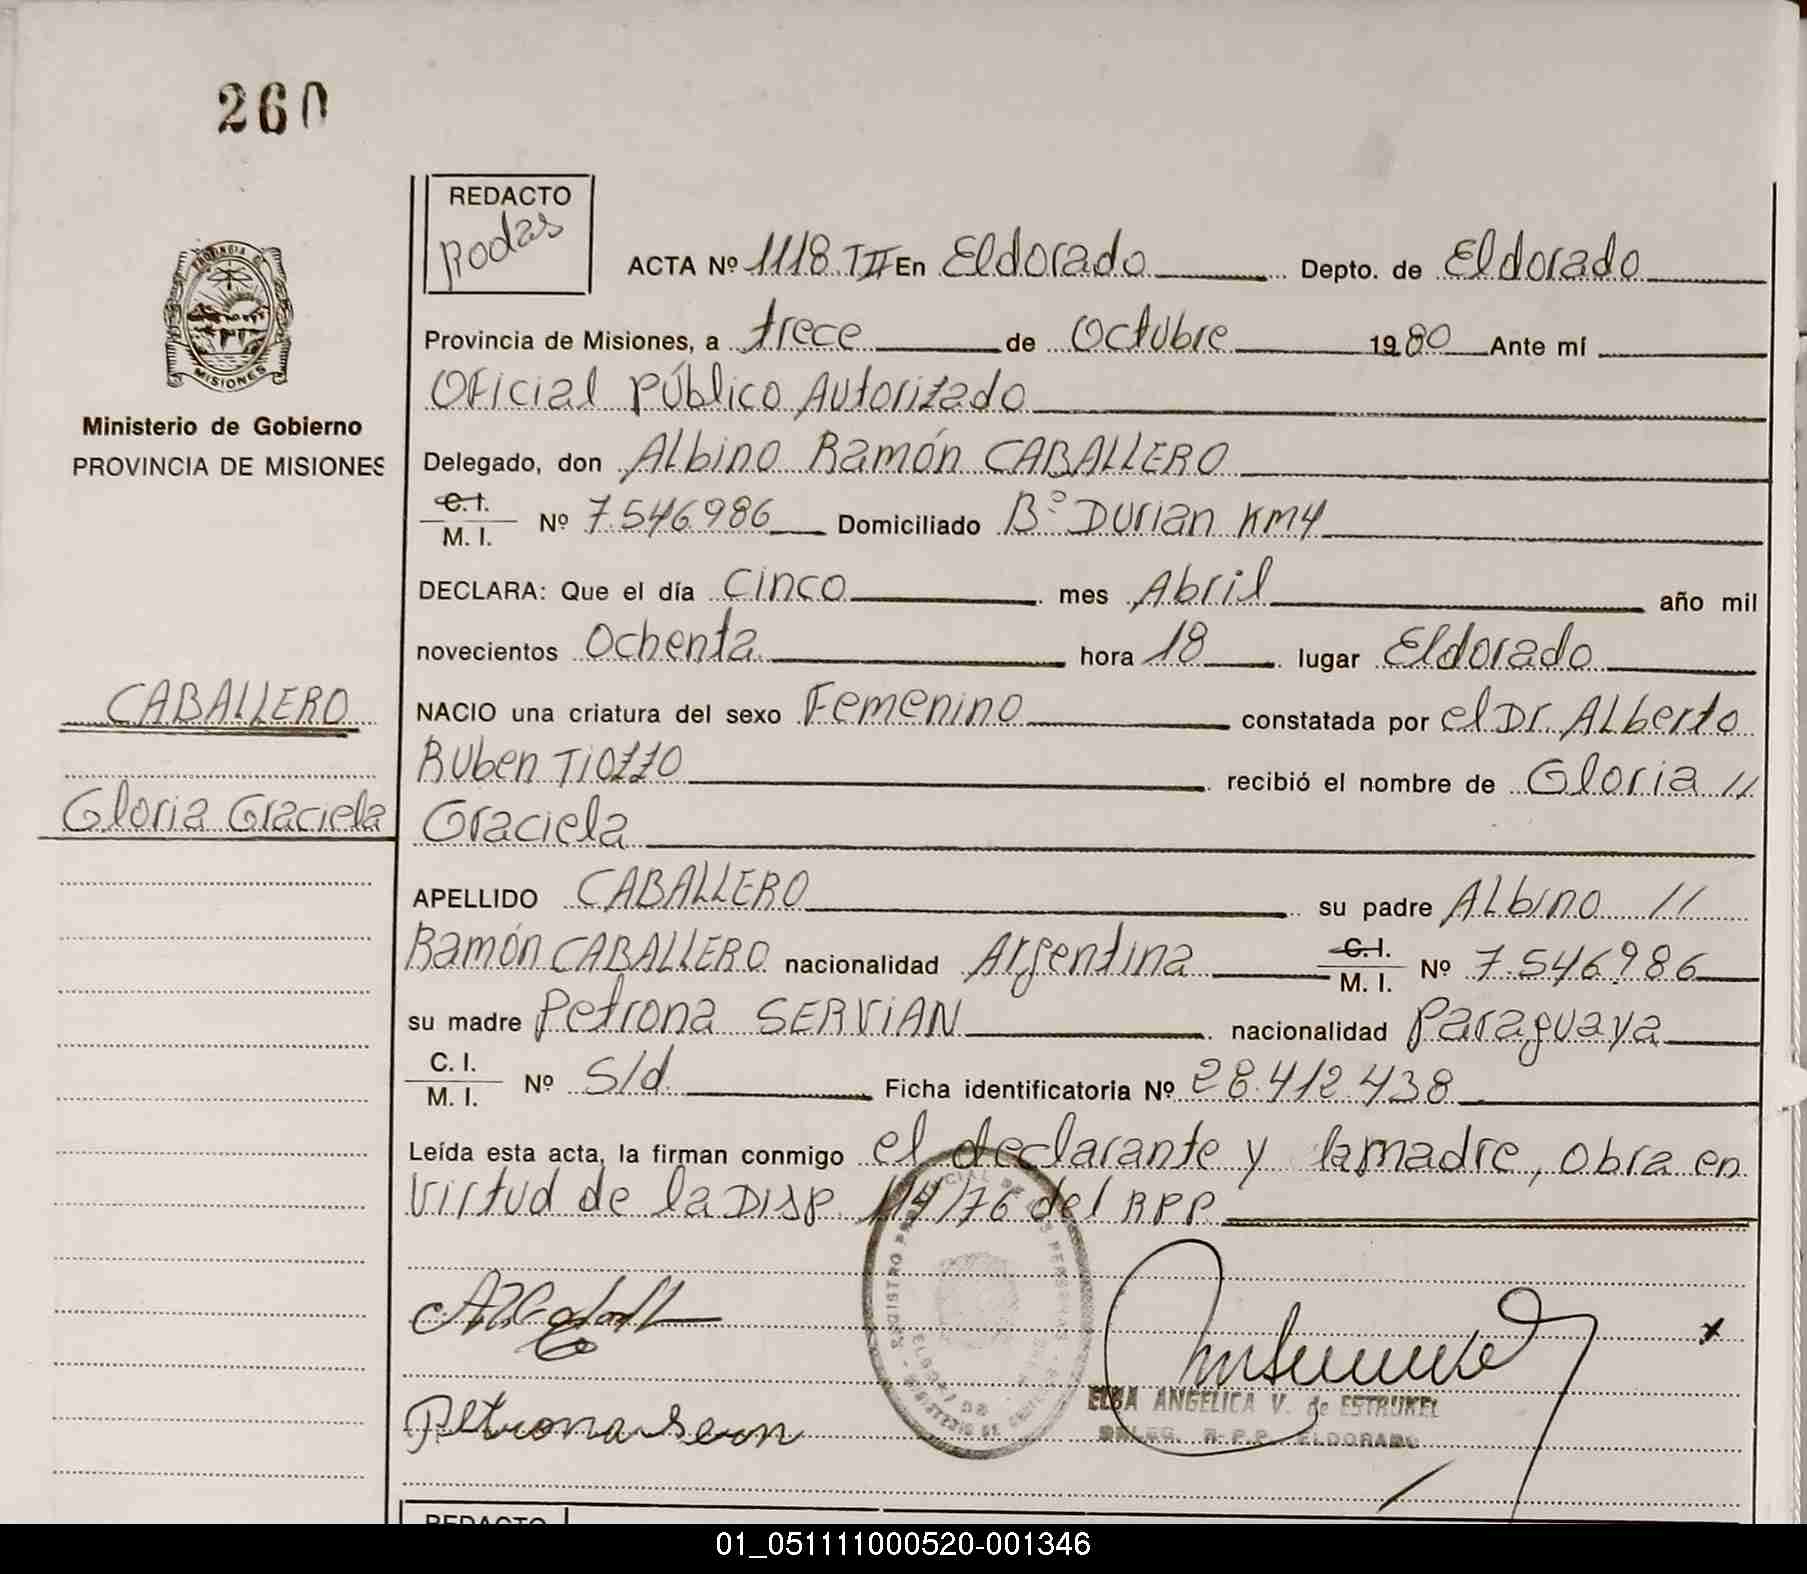 260
REDACTO
Rodas
ACTA Nº 1118 TII En Eldorado Depto. de Eldorado
PROVINCIA DE
MISIONES
Provincia de Misiones, a trece de Octubre 1980 Ante mí
Oficial Público Autorizado
Ministerio de Gobierno
PROVINCIA DE MISIONES
Delegado, don Albino Ramón CABALLERO
C. I.
M. I. Nº 7.546.986 Domiciliado Bº Durian KM4
DECLARA: Que el día Cinco mes Abril año mil
novecientos Ochenta hora 18 lugar Eldorado
CABALLERO
NACIO una criatura del sexo Femenino constatada por el Dr. Alberto
Ruben Tiozzo recibió el nombre de Gloria //
Gloria Graciela
Graciela
APELLIDO CABALLERO su padre Albino //
Ramón CABALLERO nacionalidad Argentina C. I. M. I. Nº 7.546.986
su madre Petrona SERVIAN nacionalidad Paraguaya
C. I.
M. I. Nº S/d. Ficha identificatoria Nº 28.412.438
Leída esta acta, la firman conmigo el declarante y la madre, obra en
virtud de la Disp. 114/76 del RPP
Petrona Sern
ELBA ANGELICA V. de ESTRUKEL
DELEG. R.P.P. ELDORADO
REDACTO
01_051111000520-001346